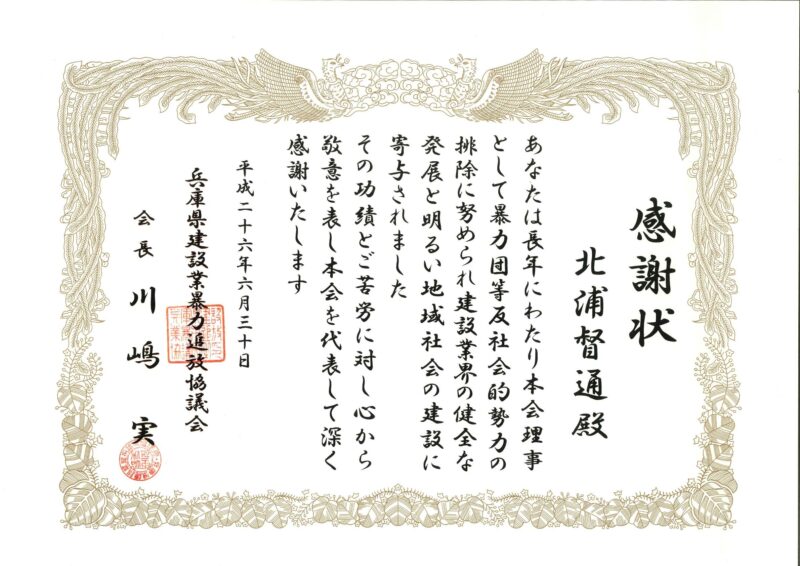 感謝状
北浦督通殿
あなたは長年にわたり本会理事
として暴力団等反社会的勢力の
排除に努められ建設業界の健全な
発展と明るい地域社会の建設に
寄与されました
その功績とご苦労に対し心から
敬意を表し本会を代表して深く
感謝いたします
平成二十六年六月三十日
兵庫県建設業暴力追放協議会
会長 川嶋実